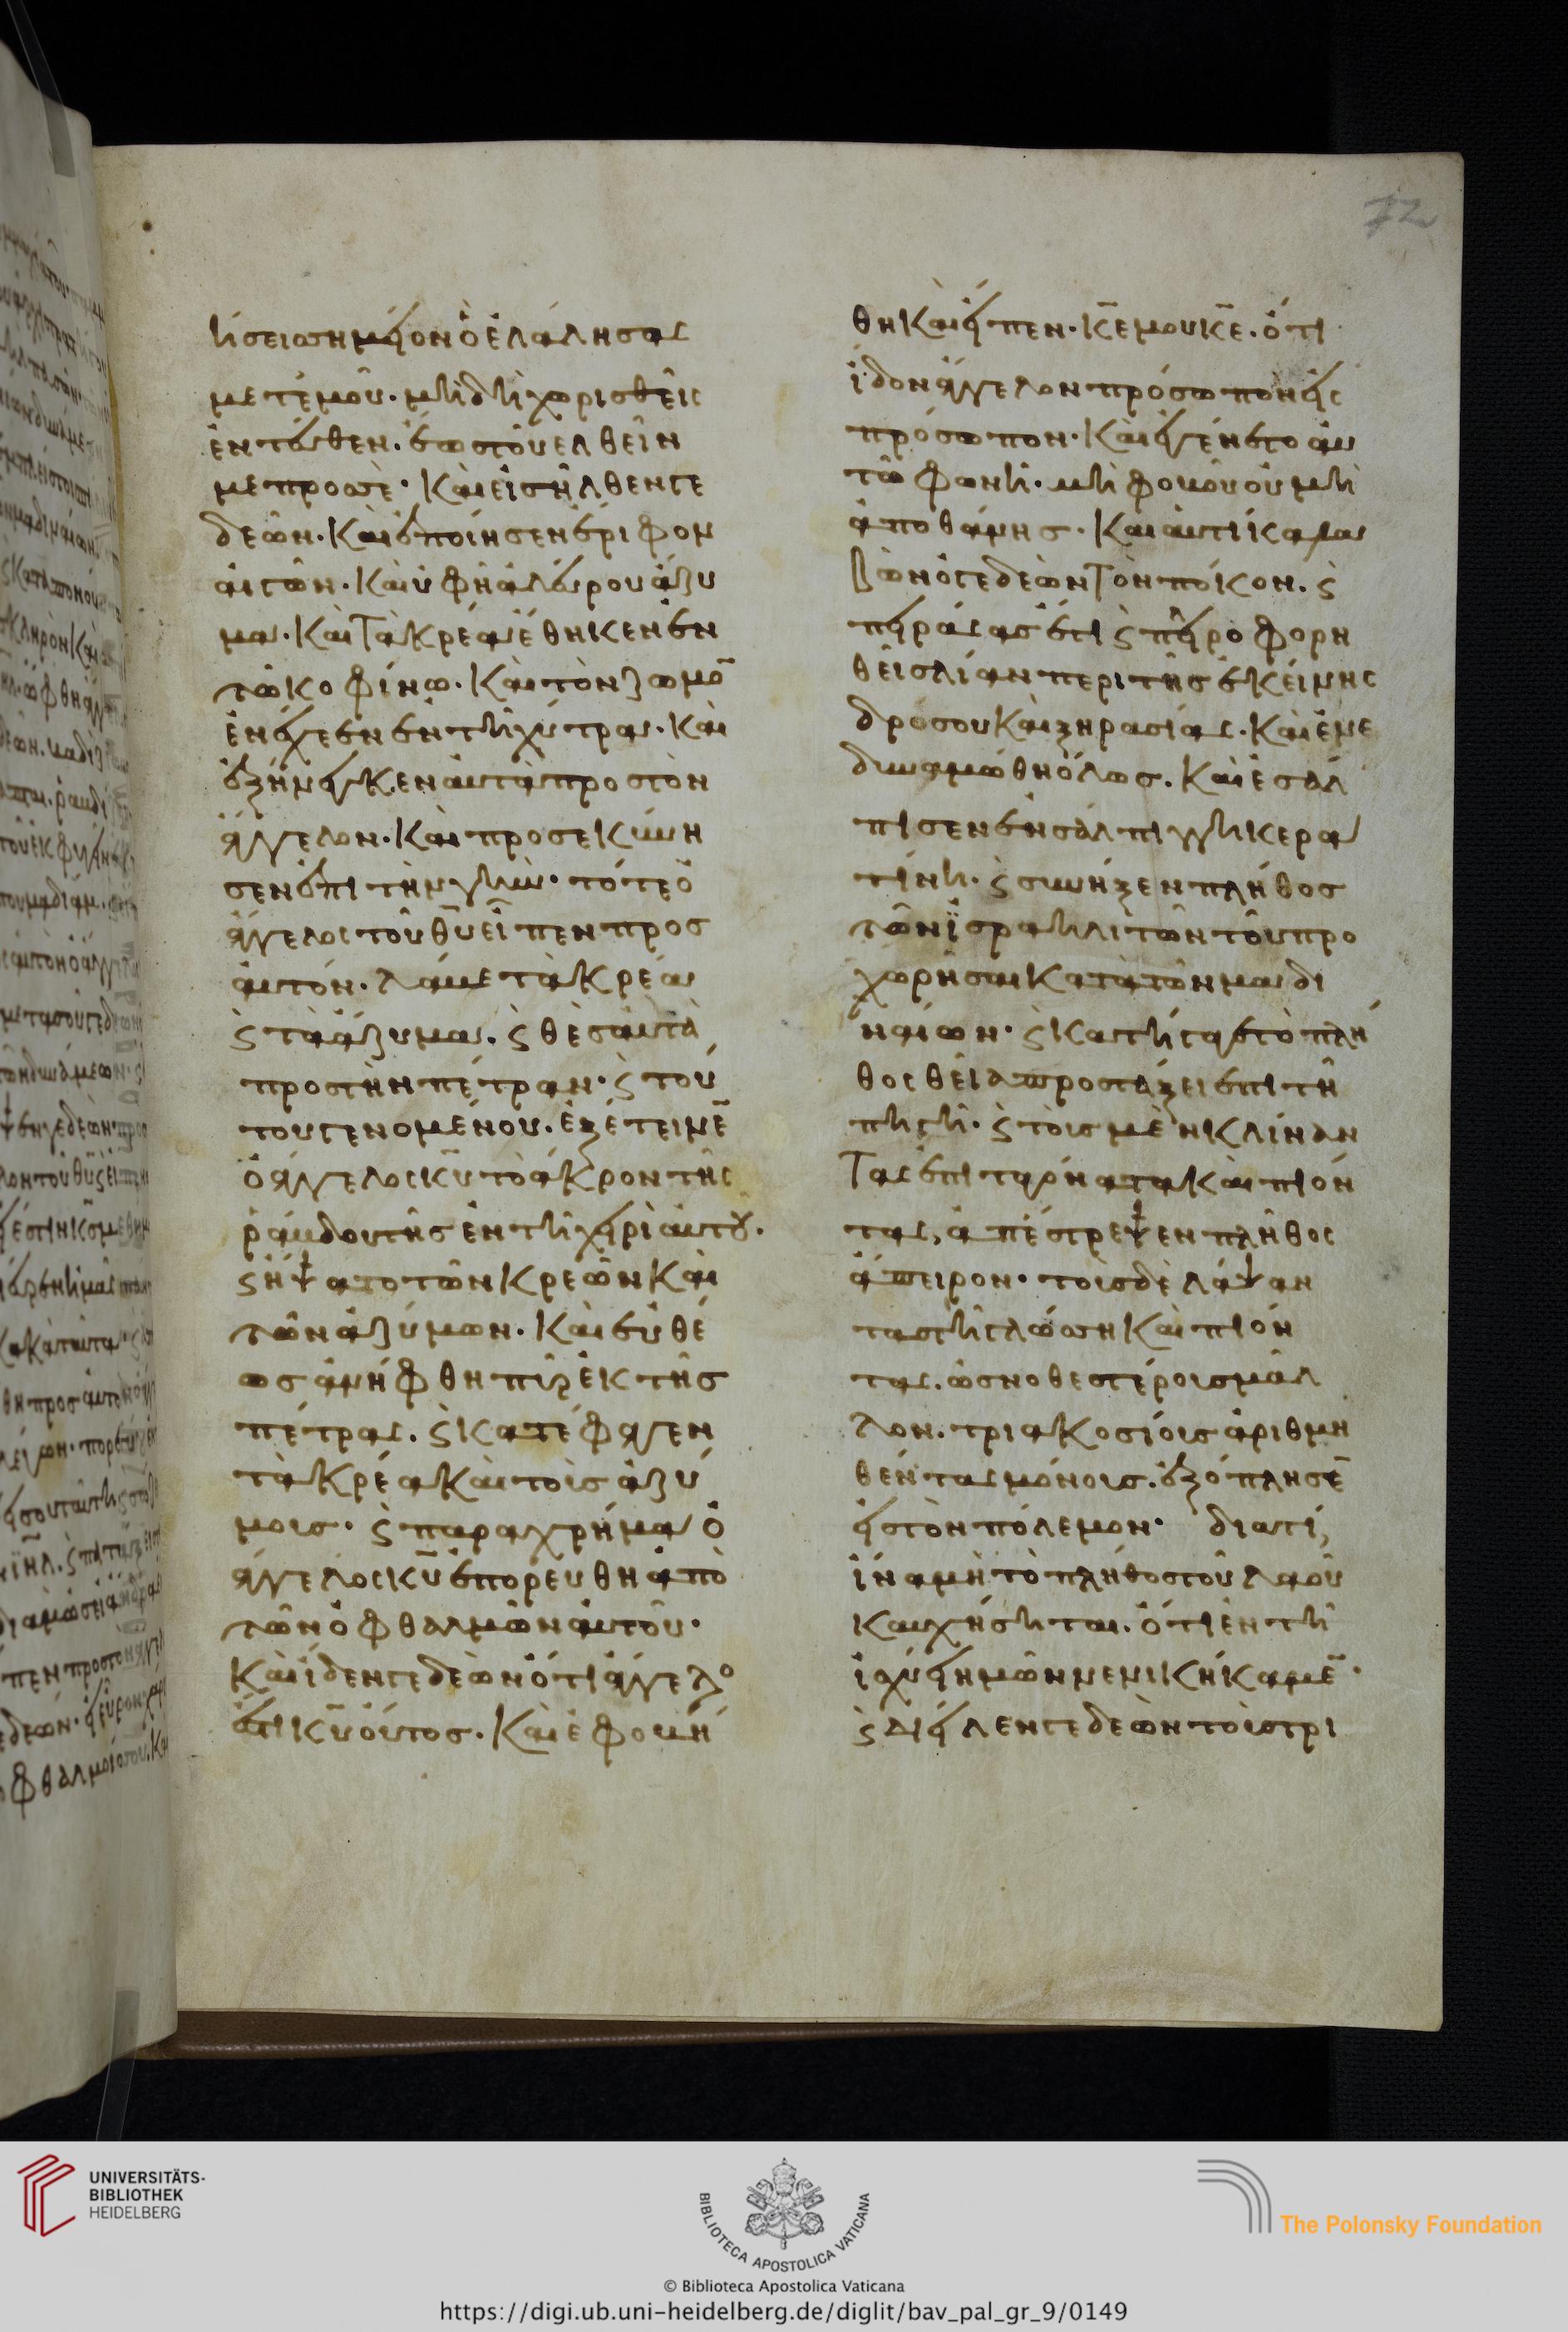 72
ἡσειασημεῖον ὃ ἐλάλησας
μετεμοῦ· μὴ δὴ χωρισθεὶς
ἐντεῦθεν. ἑωστοῦ ελθεῖν
με προσσὲ· καὶ εἰσῆλθεν γε
δεὼν. καὶ ἐποίησεν ἔριφον
αἰγῶν. καὶ ὑφῆ ἀλεύρου ἄζυ
μα. καὶ τὰ κρέα ἔθηκεν ἐν
τῶ κοφίνω. καὶ τὸν ζωμὸ̄
ἐνέχεεν ἐν τῆ χύτρα. καὶ
ἐξήνεγκεν αὐτὰ προς τὸν
ἄγγελον. καὶ προσεκύνη
σεν ἐπὶ τὴν γῆν. τότε ὁ
ἄγγελος τοῦ θῡ εἶπεν προς
αὐτόν. λάβε τὰ κρέα
ϛ τὰ ἄζυμα. ϛ θὲς αὐτὰ
προς τὴν πέτραν. ϛ τού
του γενομένου. ἐξέτεινε̄
ὁ ἄγγελος κ̄υ τὸ ἄκρον τῆς
ῥάβδου τῆς ἐν τῆ χειρὶ αὐτοῦ.
ϛ ἥψατο τῶν κρεῶν καὶ
τῶν ἀζύμων. καὶ εὐθέ
ως ἀνήφθη πῦρ ἐκ τῆς
πέτρας. ϛ κατέφαγεν
τὰ κρέα καὶ τοὶς ἀζύ
μοις. ϛ παραχρήμα ὁ
ἄγγελος κ̄υ ἐπορευθη ἀπὸ
τῶν ὀφθαλμῶν αὐτοῦ.
καὶ ἴδεν γεδεὼν ὅτι ἄγγελο
ἐστι κ̄υ οὗτος. καὶ ἐφοβή
θη καὶ εἶπεν. κ̄ε μου κ̄ε. ὅτι
ἴδον ἄγγελον πρόσωπον εἰς
πρόσωπον. καὶ ἐγένετο αὐ
τῶ φωνὴ. μὴ φοβοῦ οὐ μὴ
ἀποθάνης. καὶ αντικατα
βὼν ὁ γεδεὼν τὸν πόκον. ϛ
πειράσας ἔτι ϛ πληροφορη
θεὶς λίαν περι τῆς ἐκείνης
δρόσου καὶ ξηρασίας. καὶ ἐνε
δυναμώθη ὅλως. καὶ ἐσάλ
πισεν ἐν σάλπιγγι κερα
τίνη. ϛ συνήξεν πλήθος
τῶν ϊσραηλιτῶν τοῦ προ
χωρῆσαι κατὰ τῶν μαδι
ηναίων. ϛ κατήγαγε τὸ πλη
θος θεία προστάξει ἐπὶ τῆ
πηγῆ. ϛ τοὶς μὲν κλίναν
τας ἐπι τα γόνατα καὶ πιόν
τας, ἀπέστρεψεν πλῆθος
ἄπειρον. τοὶς δὲ λάψαν
τας τῆ γλώσση καὶ πιόν
τας. ὡς νοθεστέροις μᾶλ
λον. τριακοσίοις ἀριθμη
θέντας μόνοις. ἐξόπλησε̄
εἰς τὸν πόλεμον. διατί,
ἵνα μὴ τὸ πλῆθος τοῦ λαοῦ
καυχήσηται. ὅτι ἐν τῆ
ἰχύει ημῶν νενικήκαμε̄.
ϛ διεῖλεν γεδεὼν τοὶς τρι
UNIVERSITÄTS-
BIBLIOTHEK
HEIDELBERG
BIBLIOTECA APOSTOLICA VATICANA
The Polonsky Foundation
© Biblioteca Apostolica Vaticana
https://digi.ub.uni-heidelberg.de/diglit/bav_pal_gr_9/0149